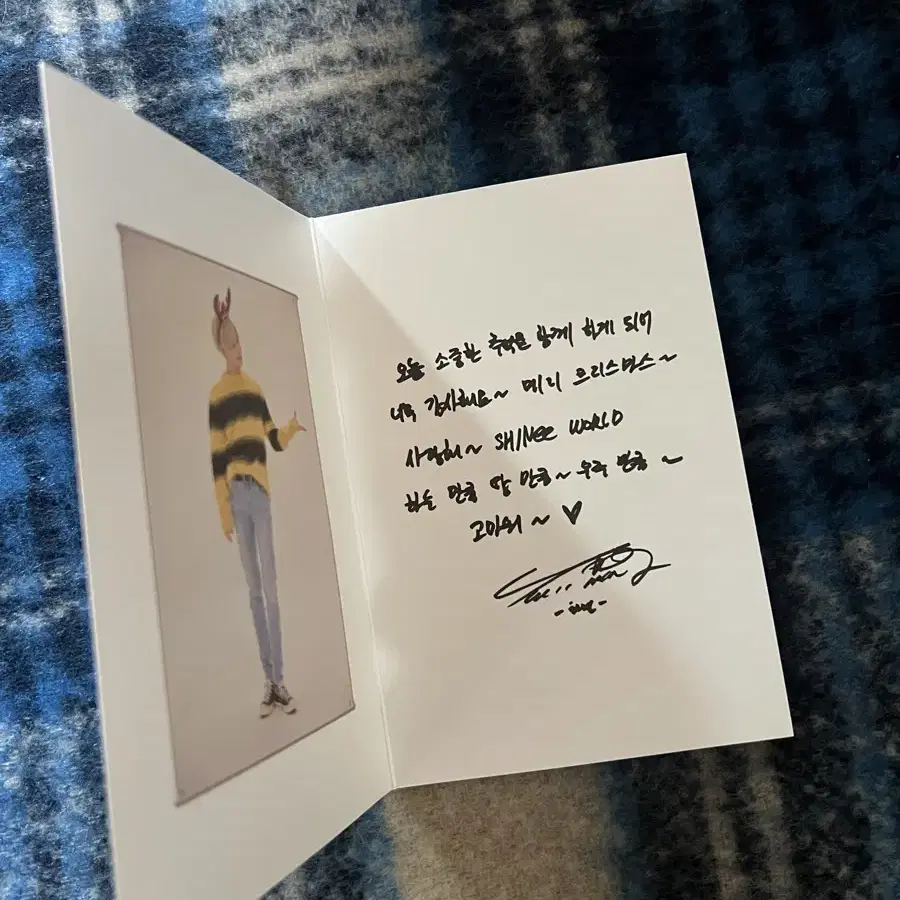 오늘 소중한 추억을 함께 하게 되어
너무 감사해요~ 메리 크리스마스~
사랑해~ SHINee WORLD
하늘 만큼 땅 만큼~ 우주 만큼~
고마워~ ♥